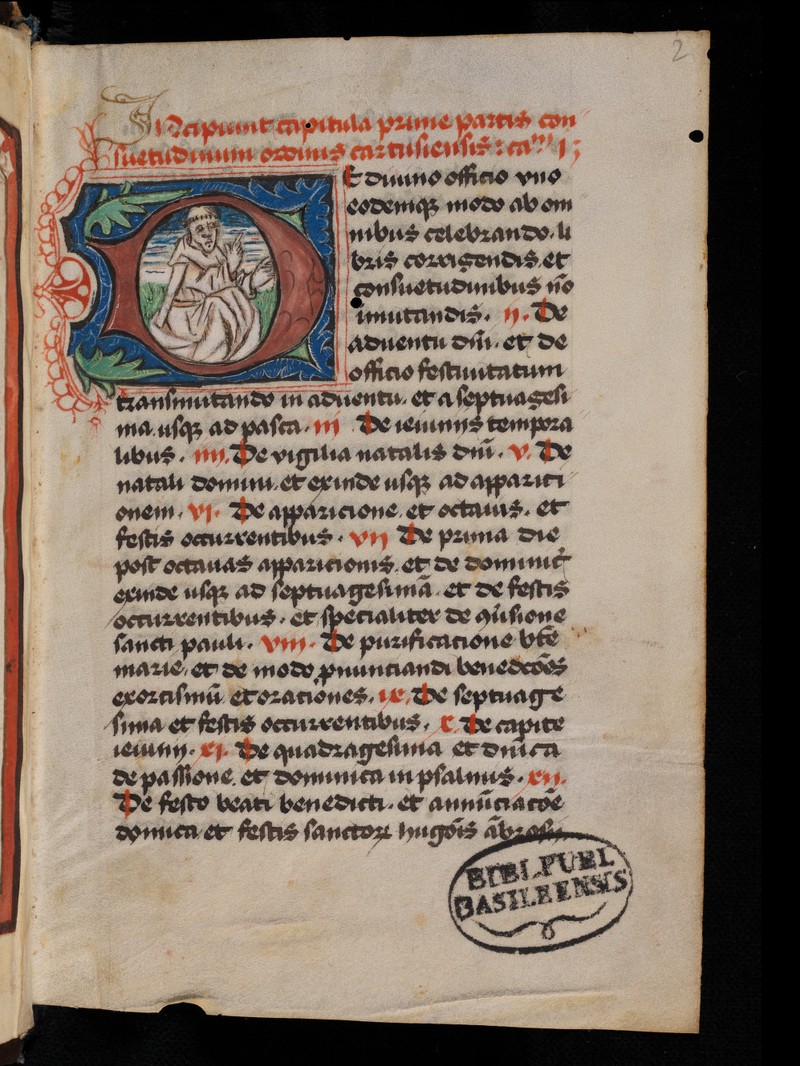 2
Incipiunt capitula prime partis con
suetudinum ordinis cartusiensis: cam 1;
De diuino officio vno
eodemq modo ab om
nibus celebrando. li
bris corrigendis. et
consuetudinibus nō
imutandis. ij. De
aduentu dnī. et de
officio festiuitatum
transmutando in aduentu. et a septuagesi
ma. usqȝ ad pasca. iij De ieiuniis tempora
libus. iiij. De vigilia natalis dnī. v. De
natali domini. et exinde usqȝ ad appariti
onem. vj. De apparicione. et octauis. et
festis occurrentibus. vij De prima die
post octauas apparicionis. et de dominic̄
exinde usqȝ ad septuagesimā. et de festis
occurrentibus. et specialiter de 9uersione
sancti pauli. viij. De purificatione bt̄e
marie. et de modo ꝓnunciandi benedcōes
exorcismū et orationes. ix. De septuage
sima et festis occurrentibus. x. De capite
ieiunij. xj. De quadragesima et dnīca
de passione. et dominica in psalmis. xij.
De festo beati benedicti. et annūciacōe
domīca et festis sanctorꝝ hugōis ābrosij
BIBL.PUBL
BASILEENSIS